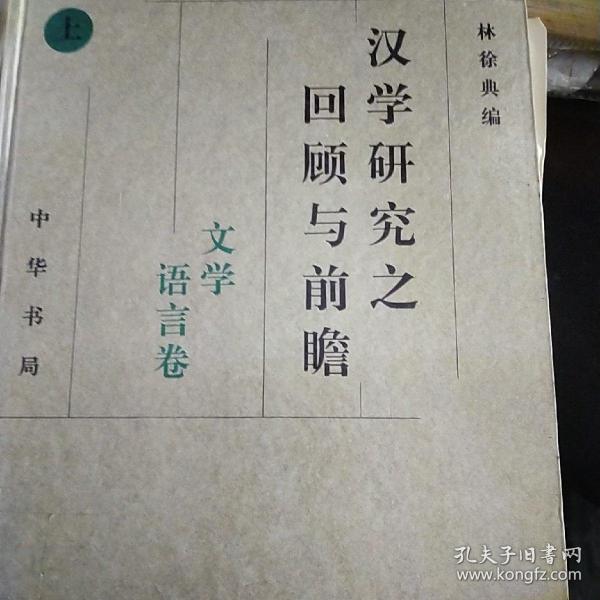 林徐典编
汉学研究之
回顾与前瞻
文学
语言卷
上
中华书局
孔夫子旧书网
www.kongfz.com